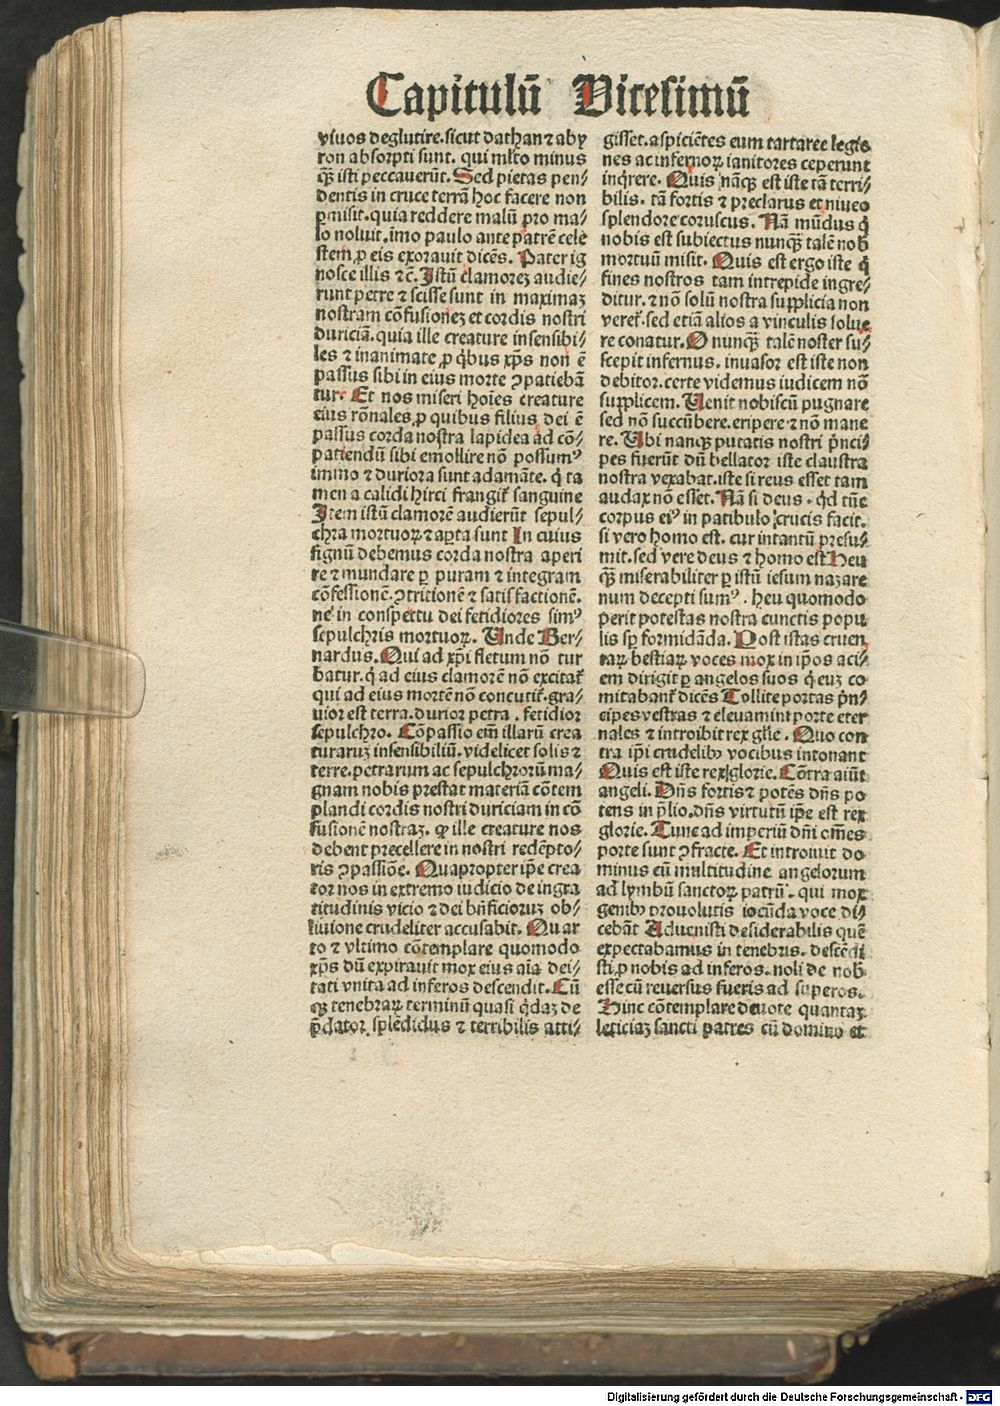 Capitulū Vicesimū
viuos deglutire. sicut dathan ⁊ aby
ron absorpti sunt. qui mĺto minus
qꝫ̄ isti peccauerūt. Sed pietas pen-
dentis in cruce terrā hoc facere non
ꝑmisit. quia reddere malū pro ma-
lo noluit. īmo paulo ante patrē cele
stem ꝓ eis exorauit dicēs. Pater ig
nosce illis ⁊ c̄. Istū clamoreꝫ audie-
runt petre ⁊ scisse sunt in maximaꝫ
nostram cōfusioneꝫ et cordis nostri
duriciā. quia ille creature insensibi-
les ⁊ inanimate ꝓ qͥbus xp̄s non ē
passus sibi in eius morte ꝯpatiebā
tur. Et nos miseri hoīes creature
eius rōnales ꝓ quibus filius dei ē
passus corda nostra lapidea ad cō-
patiendū sibi emollire nō possumꝰ
immo ⁊ duriora sunt adamāte. qͥ ta
men a calidi hirci frangit̄ sanguine
Item istū clamorē audierūt sepul-
chra mortuoꝝ ⁊ aꝑta sunt In cuius
signū debemus corda nostra aperi
re ⁊ mundare ꝑ puram ⁊ integram
cōfessionē. ꝯtritionē ⁊ satisfactionē.
ne in conspectu dei fetidiores simꝰ
sepulchris mortuoꝝ. Unde Ber-
nardus. Qui ad xp̄i fletum nō tur
batur. qͥ ad eius clamorē nō excitat̄
qui ad eius mortē nō concutit̄. gra-
uior est terra. durior petra. fetidior
sepulchro. Cōpassio em̄ illarū crea
turaruꝫ insensibiliū. videlicet solis ⁊
terre. petrarum ac sepulchrorū ma-
gnam nobis prestat materiā cōtem
plandi cordis nostri duriciam in cō
fusionē nostraꝫ. ꝙ ille creature nos
debent precellere in nostri redēpto-
ris ꝯpassiōe. Quapropter ip̄e crea
tor nos in extremo iudicio de ingra
titudinis vicio ⁊ dei bn̄ficioruꝫ ob-
liuione crudeliter accusabit. Quar
to ⁊ vltimo cōtemplare quomodo
xp̄s dū expirauit mox eius aīa dei-
tati vnita ad inferos descendit. Cū
qꝫ tenebraꝝ terminū quasi qͥdaꝫ de
p̄dator splēdidus ⁊ terribilis atti-
gisset. aspiciētes eum tartaree legio
nes ac infernoꝝ ianitores ceperunt
inqͥrere. Quis nāqꝫ est iste tā terri-
bilis. tā fortis ⁊ preclarus et niueo
splendore coruscus. Nā mūdus qͥ
nobis est subiectus nunqꝫ̄ talē nob̄
mortuū misit. Quis est ergo iste qͥ
fines nostros tam intrepide ingre-
ditur. ⁊ nō solū nostra supplicia non
veret̄. sed etiā alios a vinculis solue
re conatur. O nunqꝫ̄ talē noster su-
scepit infernus. inuasor est iste non
debitor. certe videmus iudicem nō
supplicem. Uenit nobiscū pugnare
sed nō succūbere. eripere ⁊ nō mane
re. Ubi nanqꝫ putatis nostri pͥnci-
pes fuerūt dū bellator iste claustra
nostra vexabat. iste si reus esset tam
audax nō esset. Nā si deus. qͥd tūc
corpus eiꝰ in patibulo crucis facit.
si vero homo est. cur intantū presu-
mit. sed vere deus ⁊ homo est Heu
qꝫ̄ miserabiliter ꝑ istū iesum nazare
num decepti sumꝰ. heu quomodo
perit potestas nostra cunctis popu
lis sꝑ formidāda. Post istas cruen
taꝝ bestiaꝝ voces mox in ip̄os aci-
em dirigit ꝑ angelos suos qͥ euꝫ co
mitabant̄ dicēs Tollite portas pͥn-
cipes vestras ⁊ eleuamini porte eter
nales ⁊ introibit rex gl̄ie. Quo con
tra ip̄i crudelibꝫ vocibus intonant
Quis est iste rex glorie. Cōtra aiūt
angeli. Dn̄s fortis ⁊ potēs dn̄s po
tens in p̄lio. dn̄s virtutū ip̄e est rex
glorie. Tunc ad imperiū dn̄i om̄es
porte sunt ꝯfracte. Et introiuit do
minus cū multitudine angelorum
ad lymbū sanctoꝝ patrū. qui mox
genibꝫ prouolutis iocūda voce di-
cebāt Aduenisti desiderabilis quē
expectabamus in tenebris. descēdi
sti ꝓ nobis ad inferos. noli de nob̄
esse cū reuersus fueris ad superos.
Hinc cōtemplare deuote quantaꝫ
leticiaꝫ sancti patres cū domino et
Digitalisierung gefördert durch die Deutsche Forschungsgemeinschaft - DFG